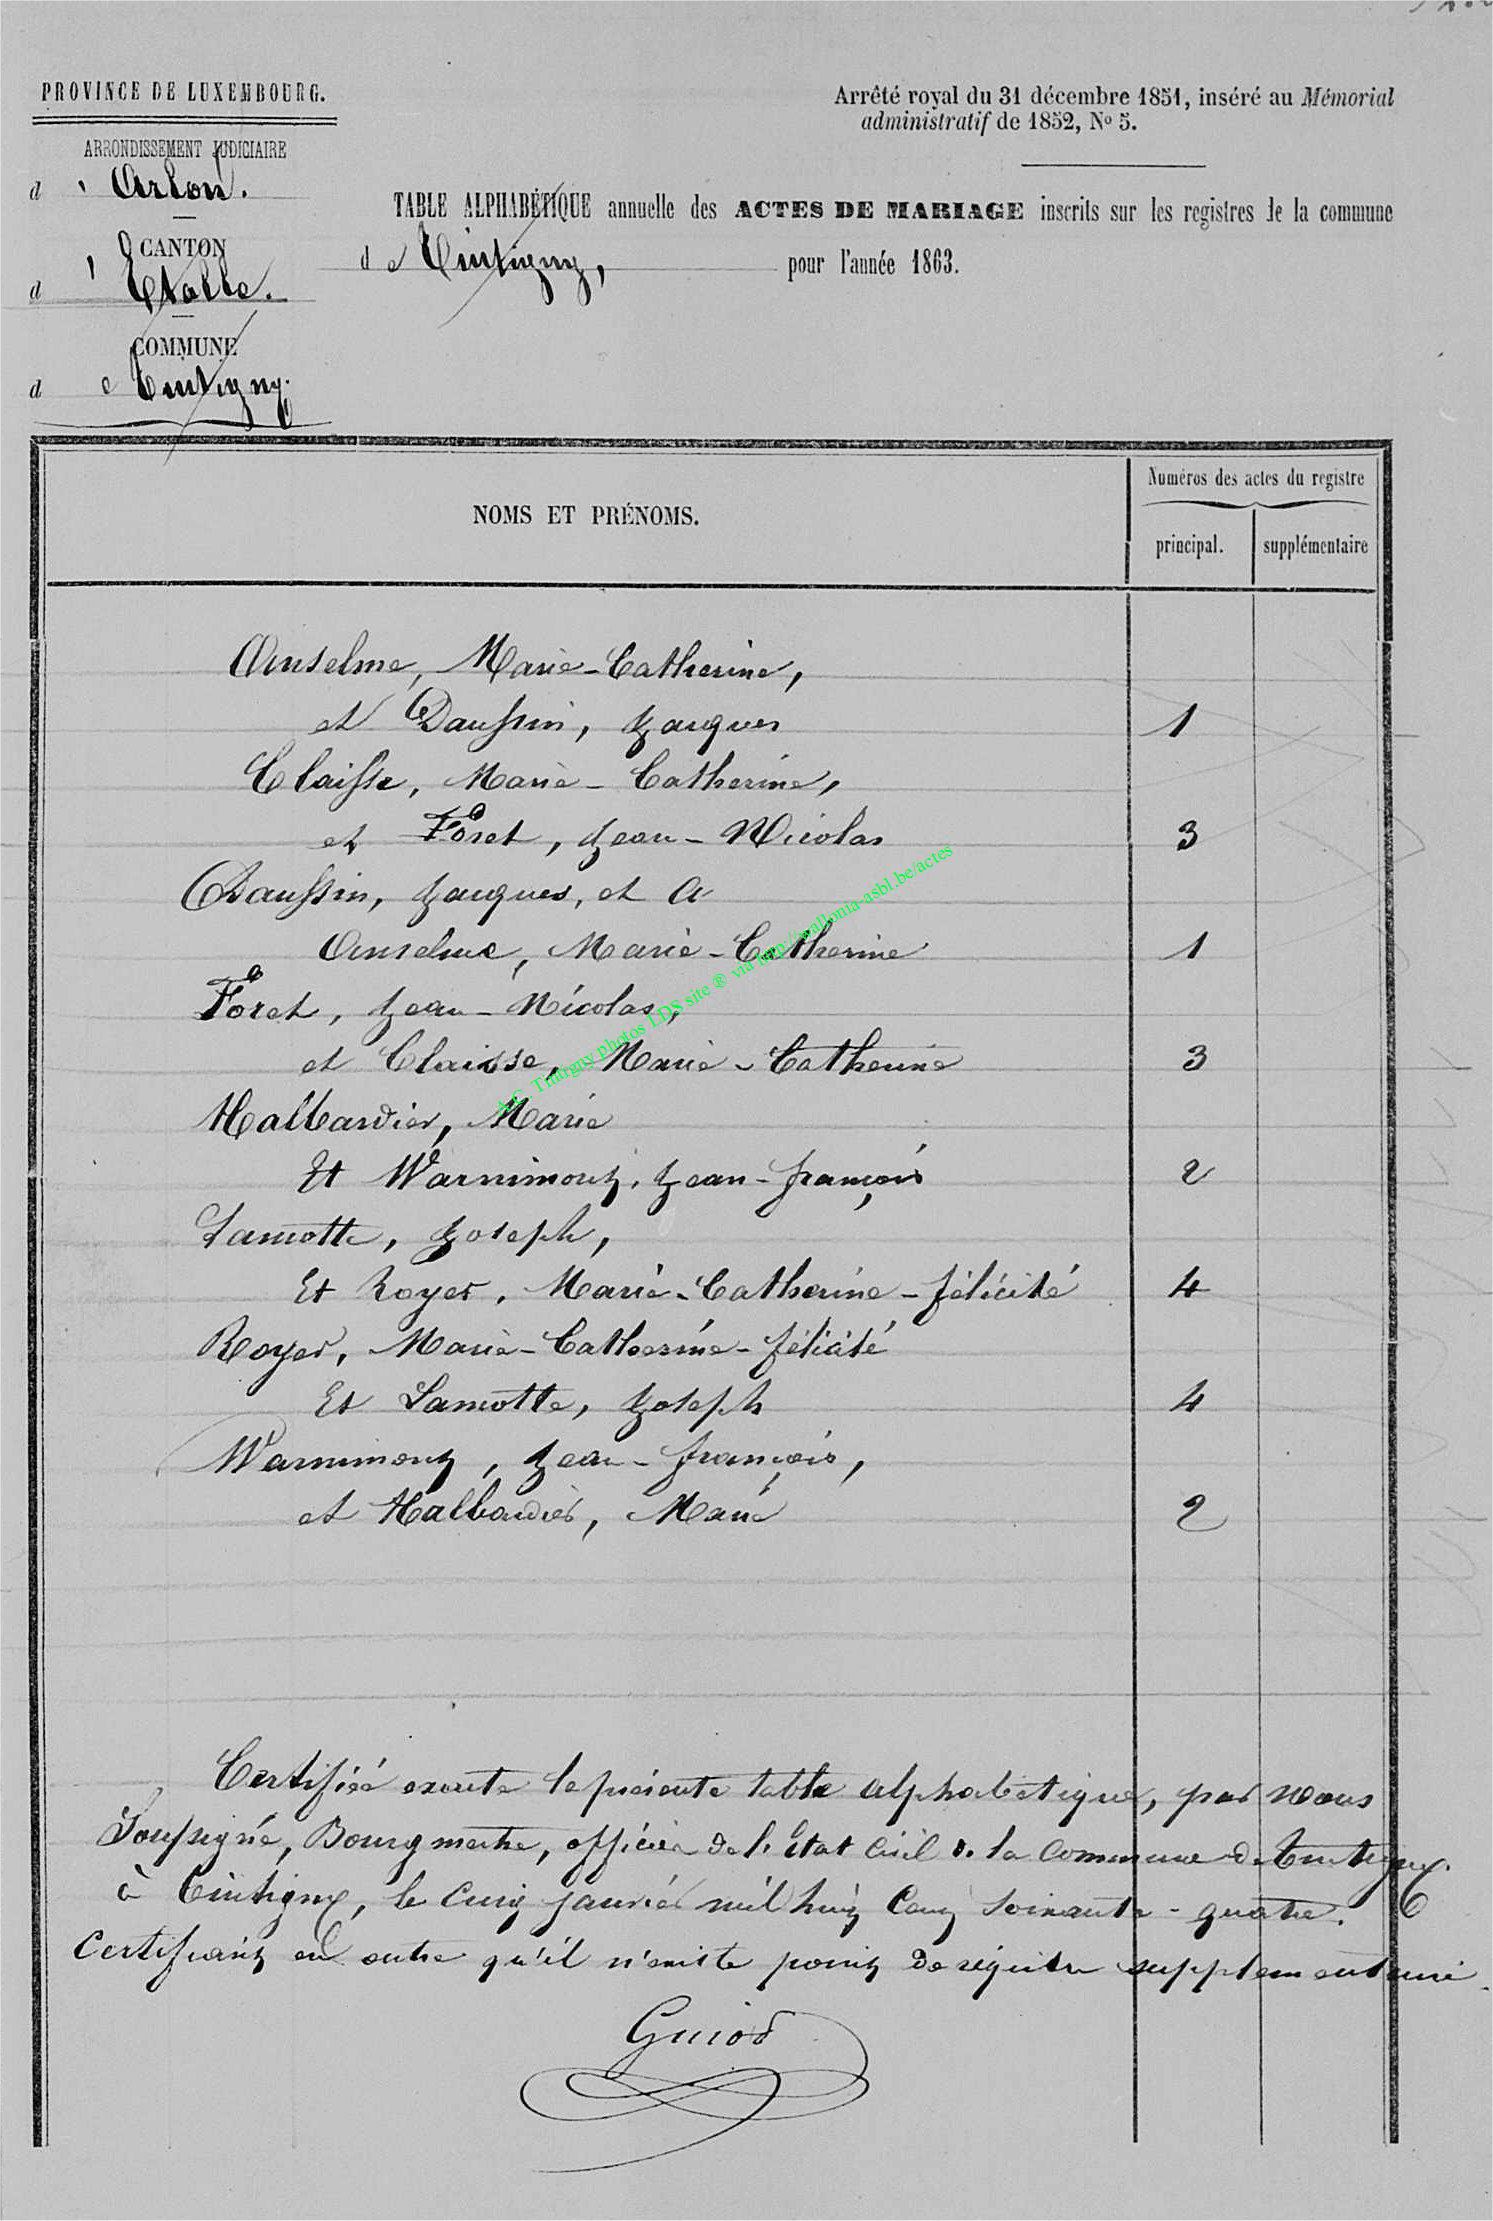 PROVINCE DE LUXEMBOURG.
Arrêté royal du 31 décembre 1851, inséré au Mémorial
administratif de 1852, No 5.
ARRONDISSEMENT JUDICIAIRE
d'Arlon.
TABLE ALPHABÉTIQUE annuelle des ACTES DE MARIAGE inscrits sur les registres de la commune
de Tintigny, pour l'année 1863.
CANTON
d'Etalle.
COMMUNE
de Tintigny.
NOMS ET PRÉNOMS.
Numéros des actes du registre
principal. supplémentaire
Anselme, Marie-Catherine,
et Daussin, Jacques 1
Claisse, Marie-Catherine,
et Foret, Jean-Nicolas 3
Daussin, Jacques, et A
Anselme, Marie-Catherine 1
Foret, Jean-Nicolas,
et Claisse, Marie-Catherine 3
Halbardier, Marie
Et Warnimont, Jean-françois 2
Lamotte, Joseph,
Et Royer, Marie-Catherine-félicité 4
Royer, Marie-Catherine-félicité
Et Lamotte, Joseph 4
Warnimont, Jean-françois,
et Halbardier, Marie 2
Certifiée exacte la présente table alphabétique, par nous
Soussigné, Bourgmestre, officier de l'Etat civil de la Commune de Tintigny.
à Tintigny, le Cinq janvier mil huit Cent soixante-quatre.
Certifiant en outre qu'il n'existe point de régistre supplémentaire.
Guiod
A.C. Tintigny photos LDS site ® via http://wallonia-asbl.be/actes